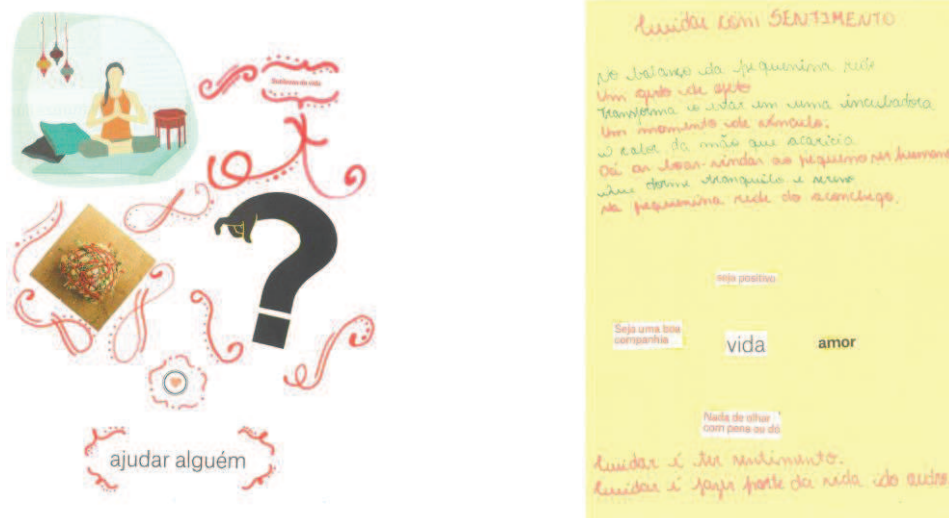 ajudar alguém
Cuidar com SENTIMENTO
No balanço da pequenina rede
Um gesto de afeto
Transforma o estar em uma incubadora
Um momento de vínculo;
O calor da mão que acaricia
Dá as boas-vindas ao pequeno ser humano
Que dorme tranquilo e sereno
Na pequenina rede do aconchego.
seja positivo
Seja uma boa
companhia
vida
amor
Nada de olhar
com pena ou dó
Cuidar é ter sentimento.
Cuidar é fazer parte da vida do outro